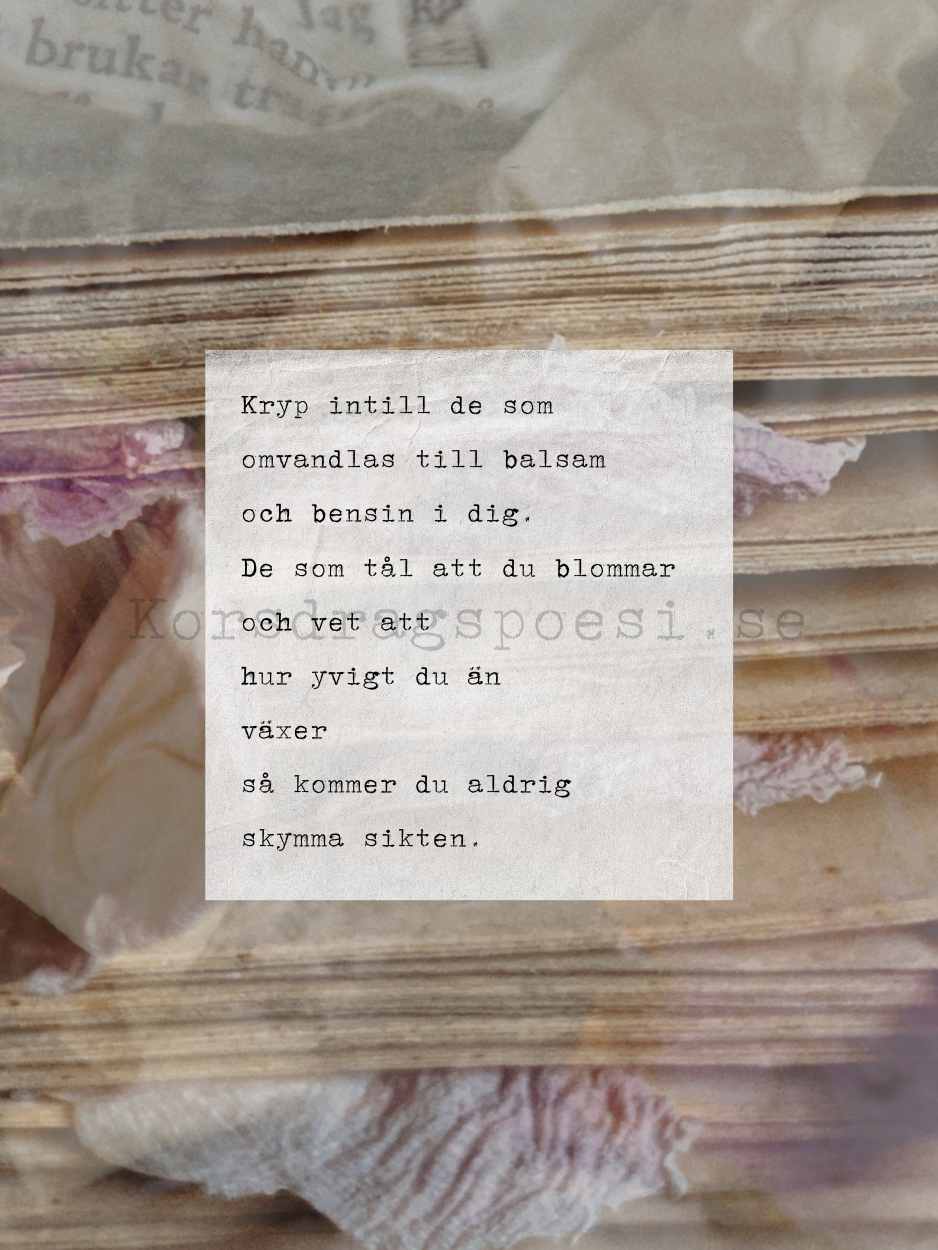 Jag
sitter han
brukar
Kryp intill de som
omvandlas till balsam
och bensin i dig.
De som tål att du blommar
Korsdragspoesi.se
och vet att
hur yvigt du än
växer
så kommer du aldrig
skymma sikten.